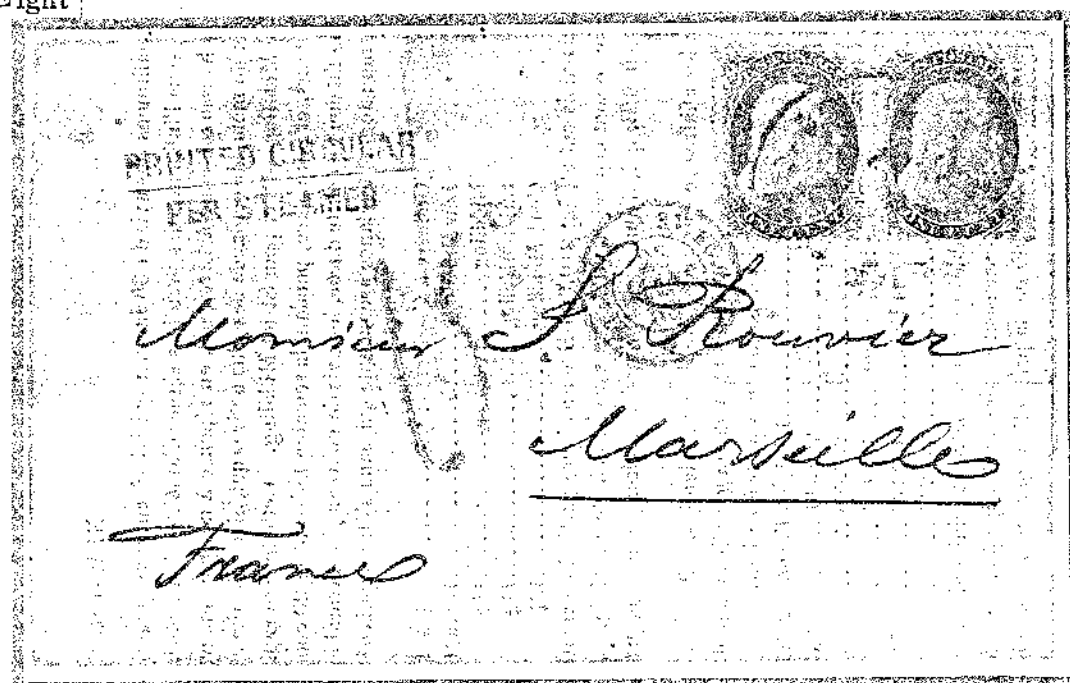 Eight
PRINTED CIRCULAR
PER STEAMER
Monsieur F. Rouvier
Marseilles
France